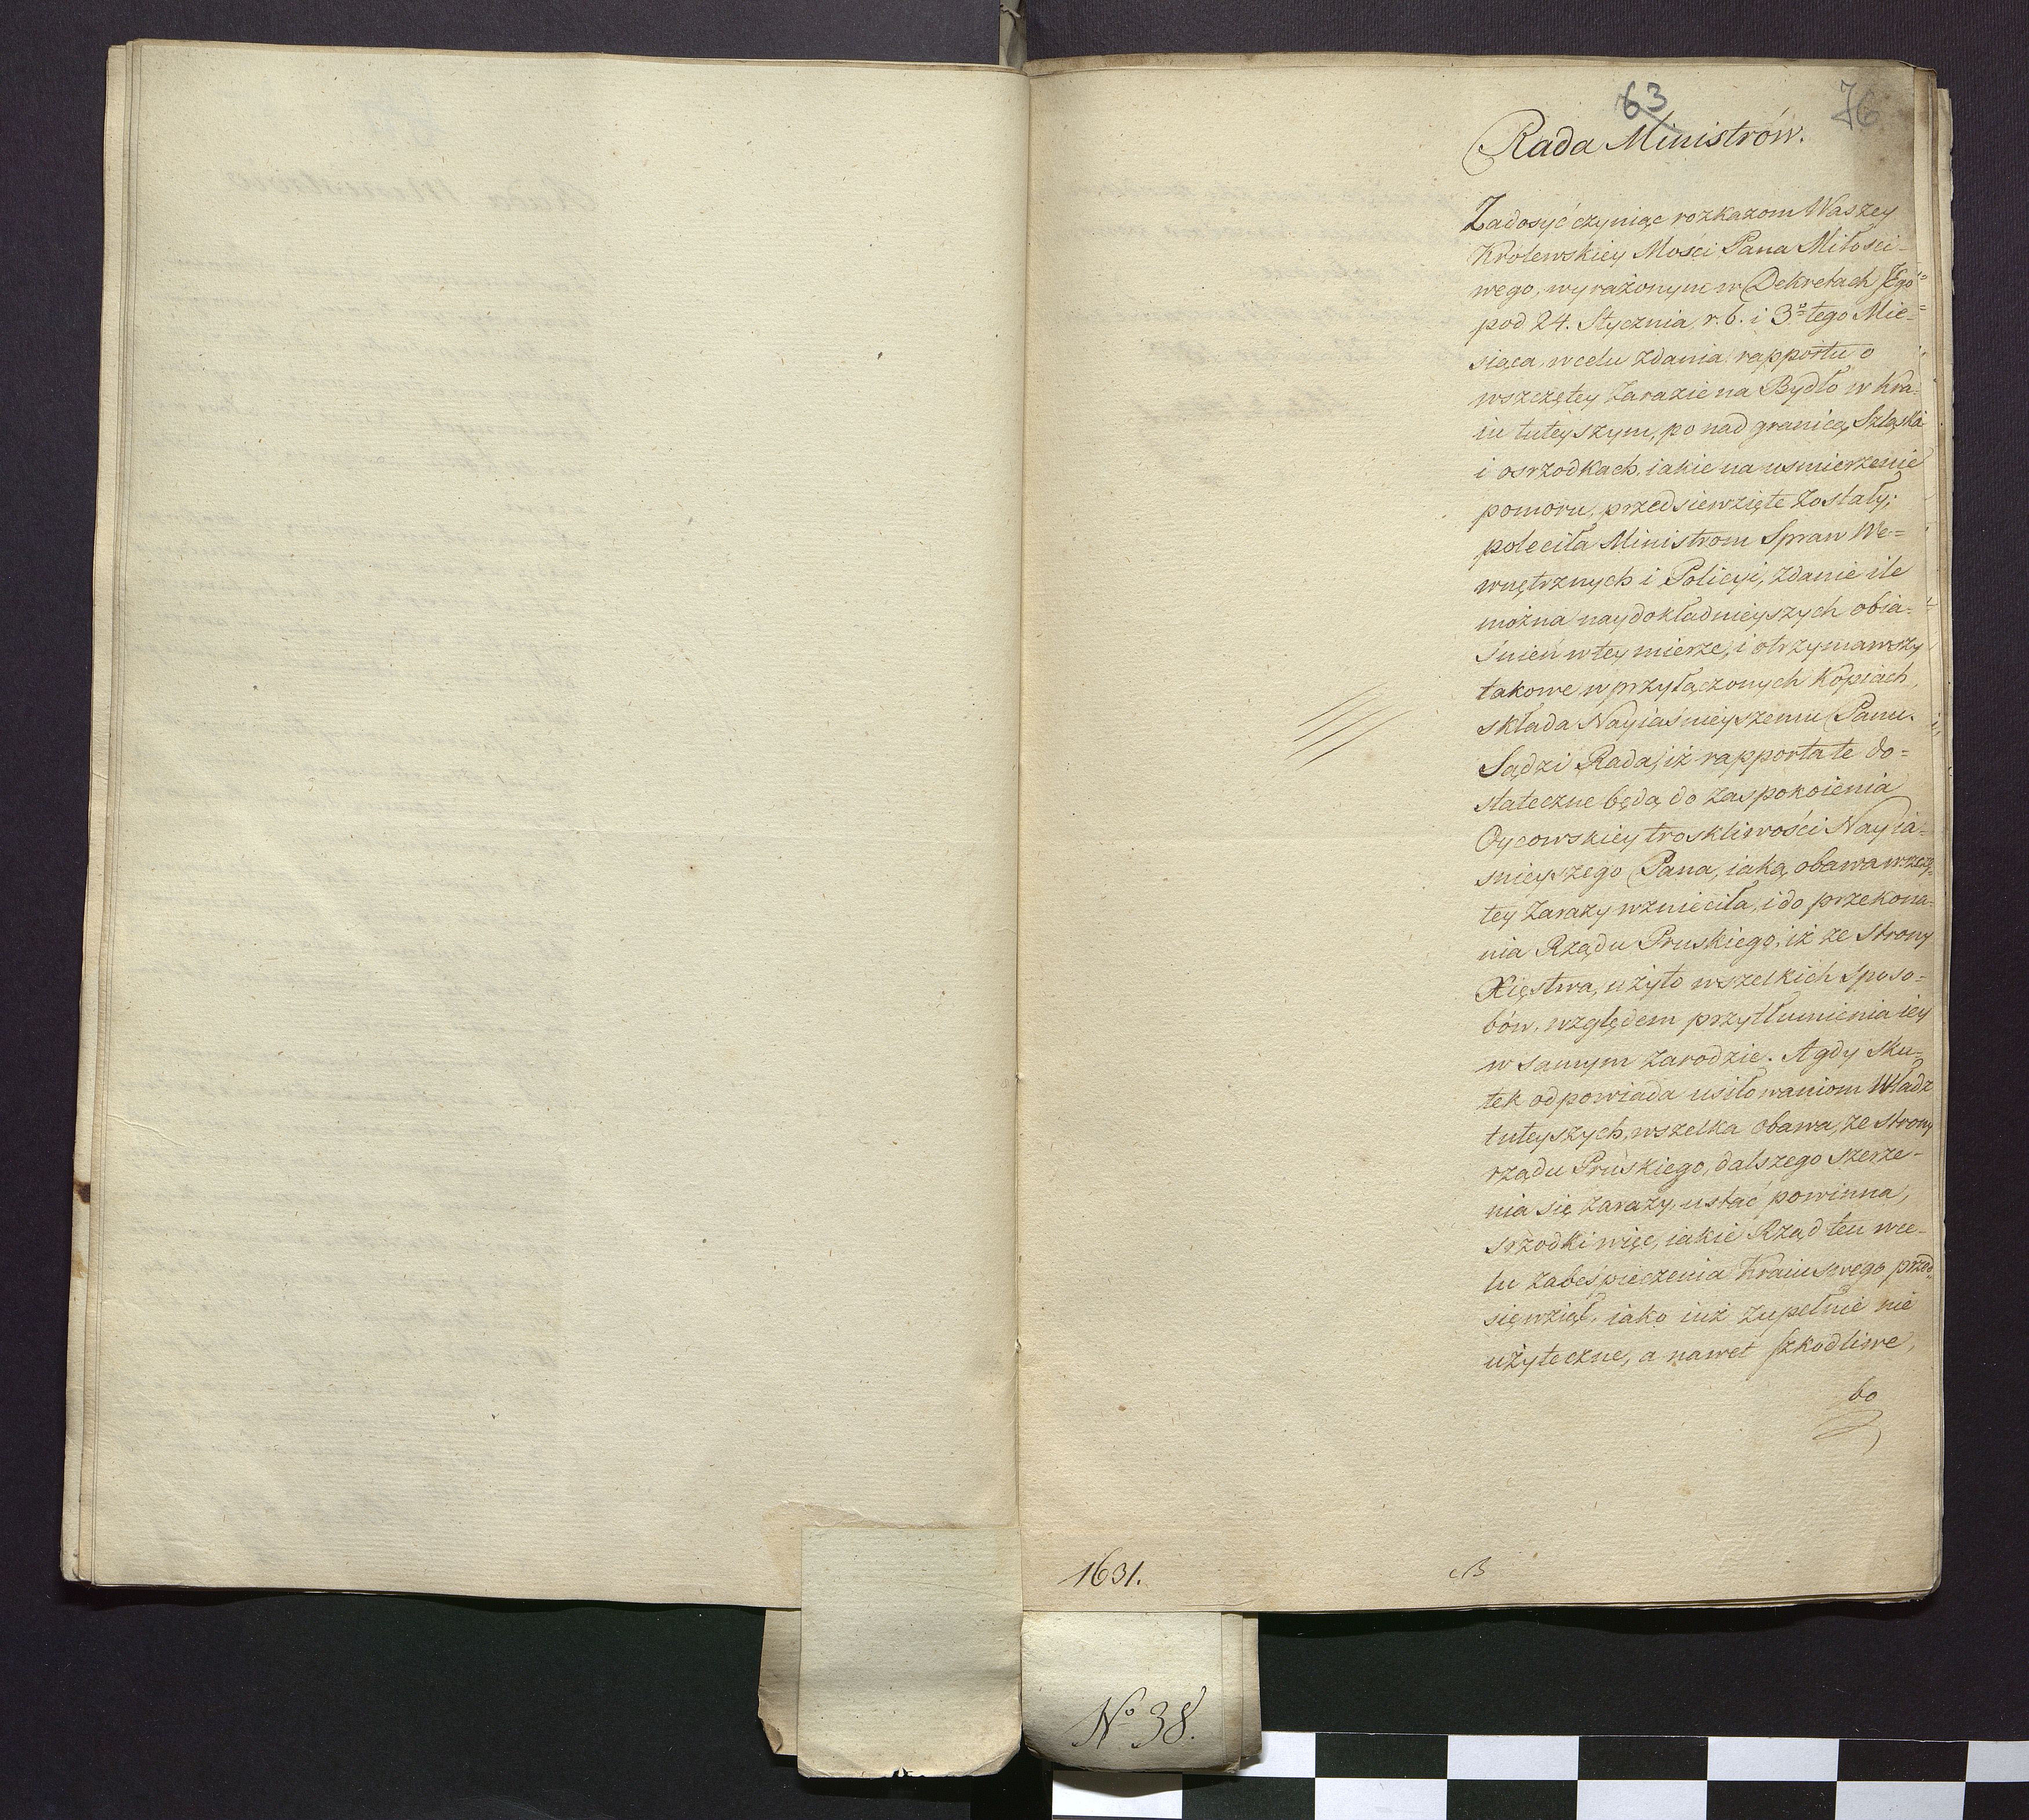 63
76
Rada Ministrów.
Zadosyć czyniąc rozkazom Waszey
Królewskiey Mości Pana Miłości-
wego, wyrażonym w Dekretach Jego
pod 24. Stycznia r. b. i 3º tego Mie-
siąca, w celu zdania rapportu o
wszczętey Zarazie na Bydło w Kra-
iu tuteyszym, po nad granicą Szląska
i osrzodkach, iakie na usmierzenie
pomoru, przedsiewzięte zostały;
poleciła Ministrom Spraw We=
wnętrznych i Policyi, zdanie ile
można naydokładnieyszych obia-
śnień w tey mierze, i otrzymawszy
takowe w przyłączonych Kopiach,
składa Nayiaśnieyszemu Panu.
Sądzi Rada, iż rapporta te do=
stateczne będą do zaspokoienia
Oycowskiey troskliwości Nayia-
śnieyszego Pana, iaką obawa wszczę-
tey Zarazy wznieciła, i do przekona-
nia Rządu Pruskiego, iż ze strony
Xięstwa, użyto wszelkich sposo-
bów, względem przytłumienia iey
w samym zarodzie. A gdy sku-
tek odpowiada usiłowaniom Władz
tuteyszych, wszelka obawa, ze strony
rządu Pruskiego, dalszego szerze-
nia się zarazy, ustać powinna,
srzodki więc, iakie Rząd ten w ce-
lu zabespieczenia Kraiu swego przed-
sięwziął, iako iuż zupełnie nie
użyteczne, a nawet szkodliwe,
bo
1631.
Nº 38.